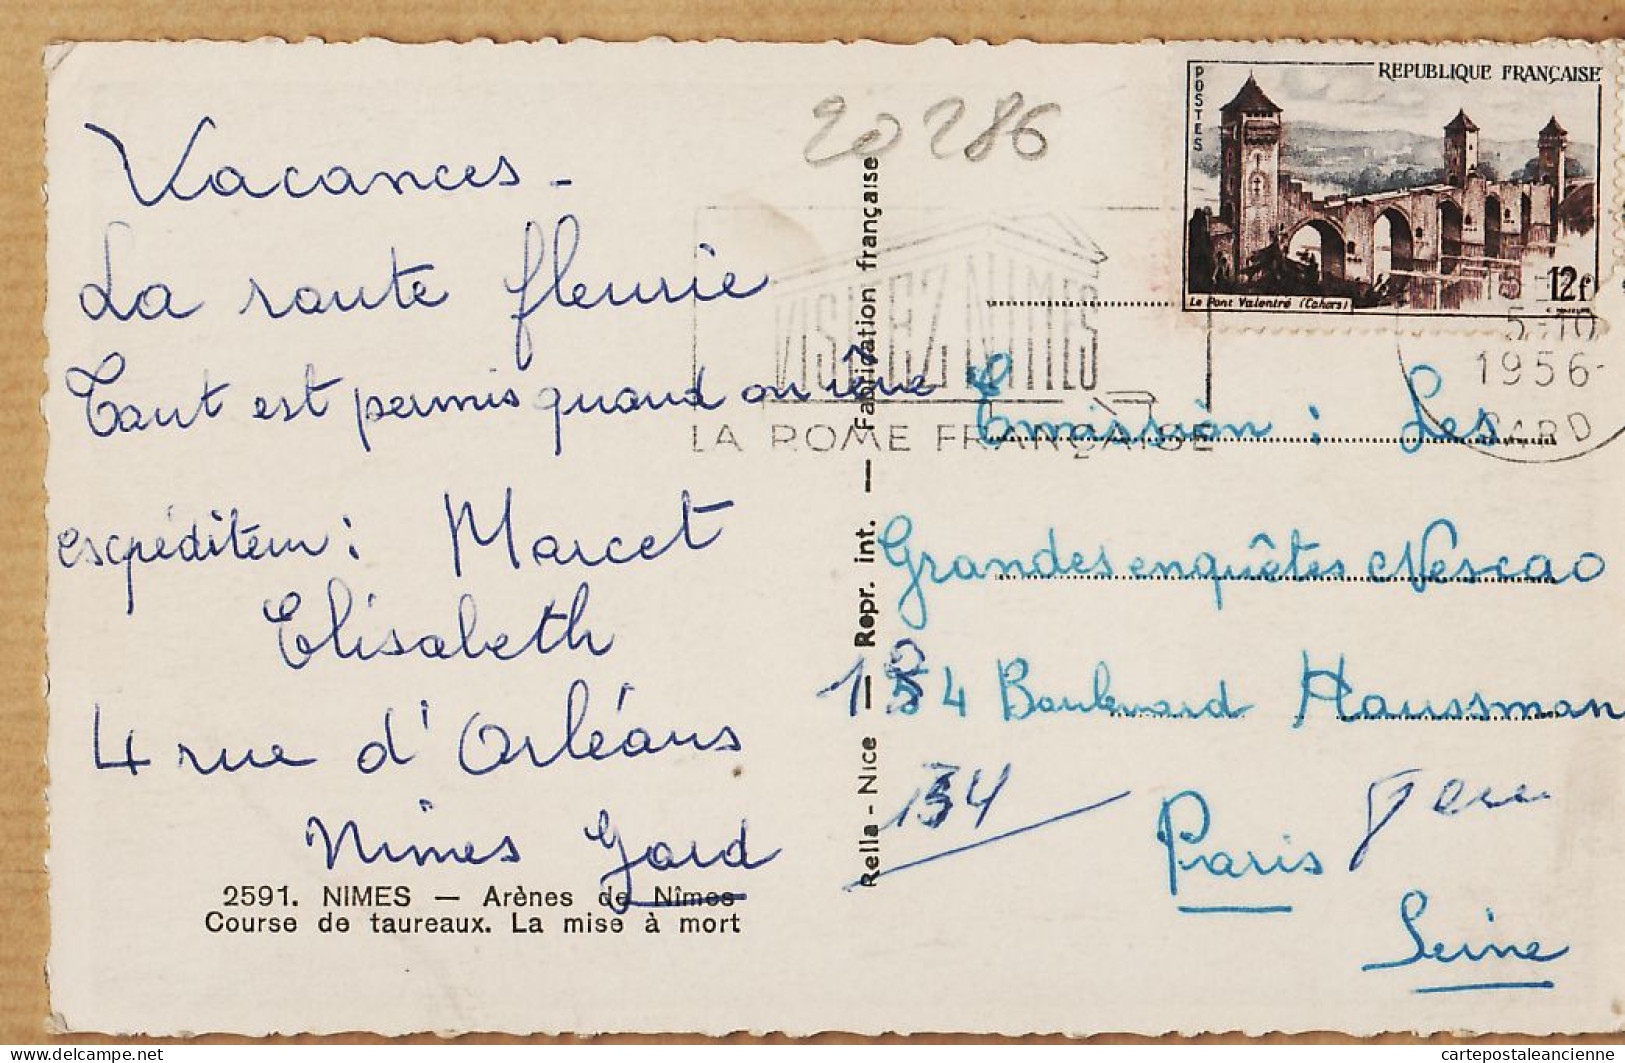 Vacances -
La route fleurie
Tout est permis quand on rêve
expéditeur : Marcet
Elisabeth
4 rue d'Orléans
Nîmes Gard
2591. NIMES — Arènes de Nîmes
Course de taureaux. La mise à mort
Rella - Nice — Repr. int. — Fabrication française
20286
VISITEZ NIMES
LA ROME FRANÇAISE
POSTES
REPUBLIQUE FRANÇAISE
Le Pont Valentré (Cahors)
12f
5-10
1956
GARD
Emission : Les
Grandes enquêtes Nescao
54 Boulevard Haussman
134
Paris
Seine
cartepostaleancienne.com